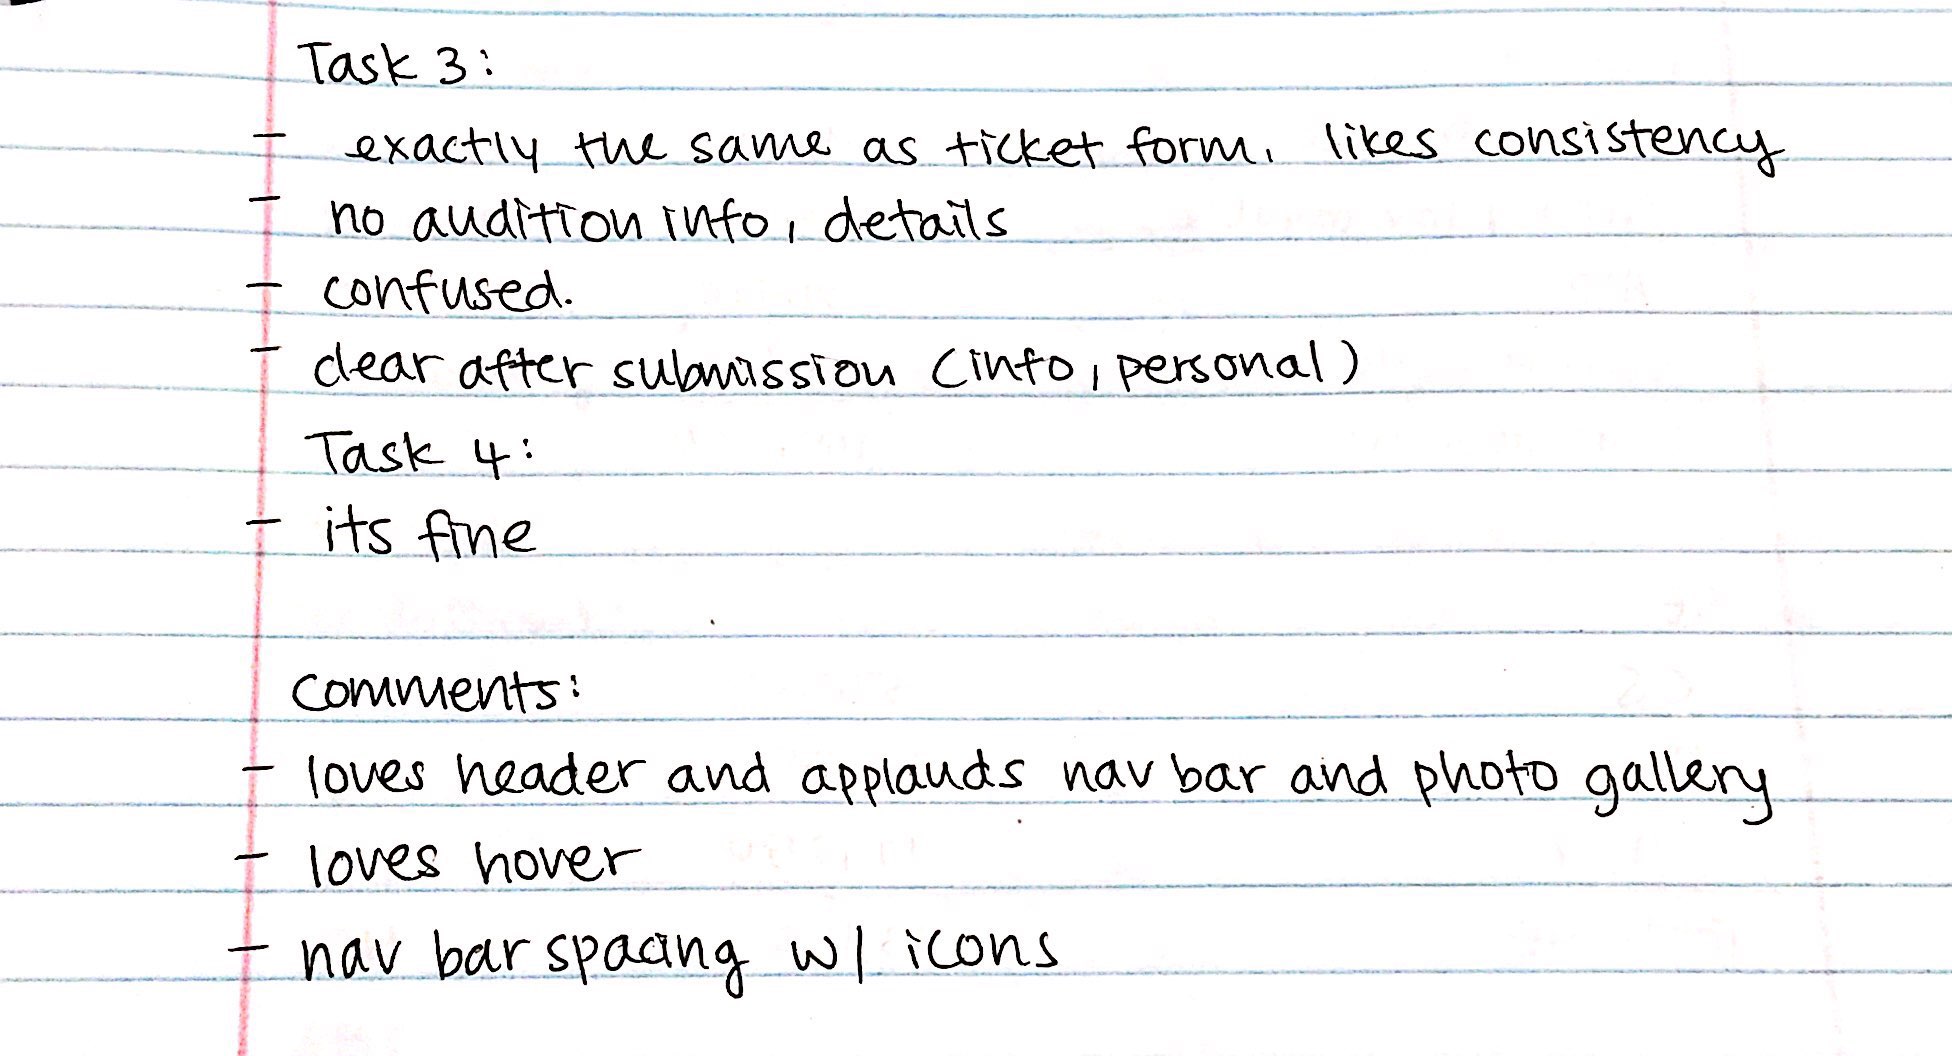 Task 3:
- exactly the same as ticket form, likes consistency
- no audition info, details
- confused.
- clear after submission (info, personal)
Task 4:
- its fine
comments:
- loves header and applauds nav bar and photo gallery
- loves hover
- nav bar spacing w/ icons